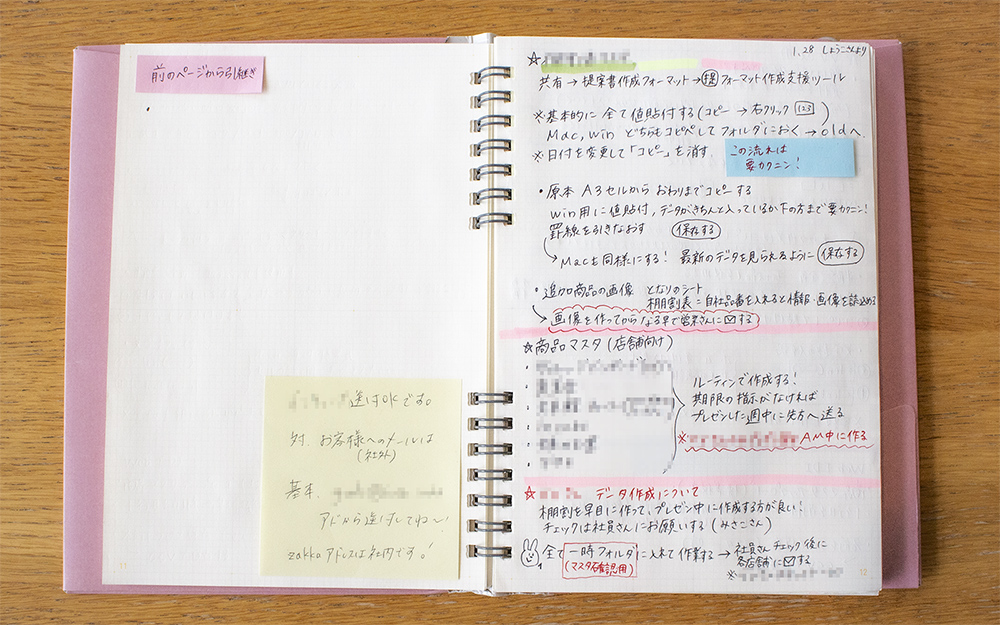 前のページから引継ぎ
送付OKです。
対、お客様へのメールは
(社外)
基本、
アドから送付してね〜!
zakkaアドレスは社内です!
11
1.28 しょうこさんより
☆
共有→提案書作成フォーマット→提フォーマット作成支援ツール
※基本的に全て値貼付する(コピー→右クリック 123)
Mac,win どちらもコピペしてフォルダにおく→oldへ
※日付を変更して「コピー」を消す
この流れは
要カクニン!
・原本 A3セルから おわりまでコピーする
win用に値貼付,データがきちんと入っているか下の方まで要カクニン!
罫線を引きなおす 保存する
Macも同様にする! 最新のデータを見られるように 保存する
・追加商品の画像 となりのシート
棚割表=自社品番を入れると情報・画像を読込める
画像を作ってからなる早で営業さんに✉する
☆商品マスタ(店舗向け)
ルーティンで作成する!
期限の指示がなければ
プレゼンした週中に先方へ送る
※ AM中に作る
☆ データ作成について
棚割を早目に作って,プレゼン中に作成する方が良い!
チェックは社員さんにお願いする(みさこさん)
全て一時フォルダに入れて作業する→社員さんチェック後に
(マスタ確認用) 各店舗に✉する
※
12